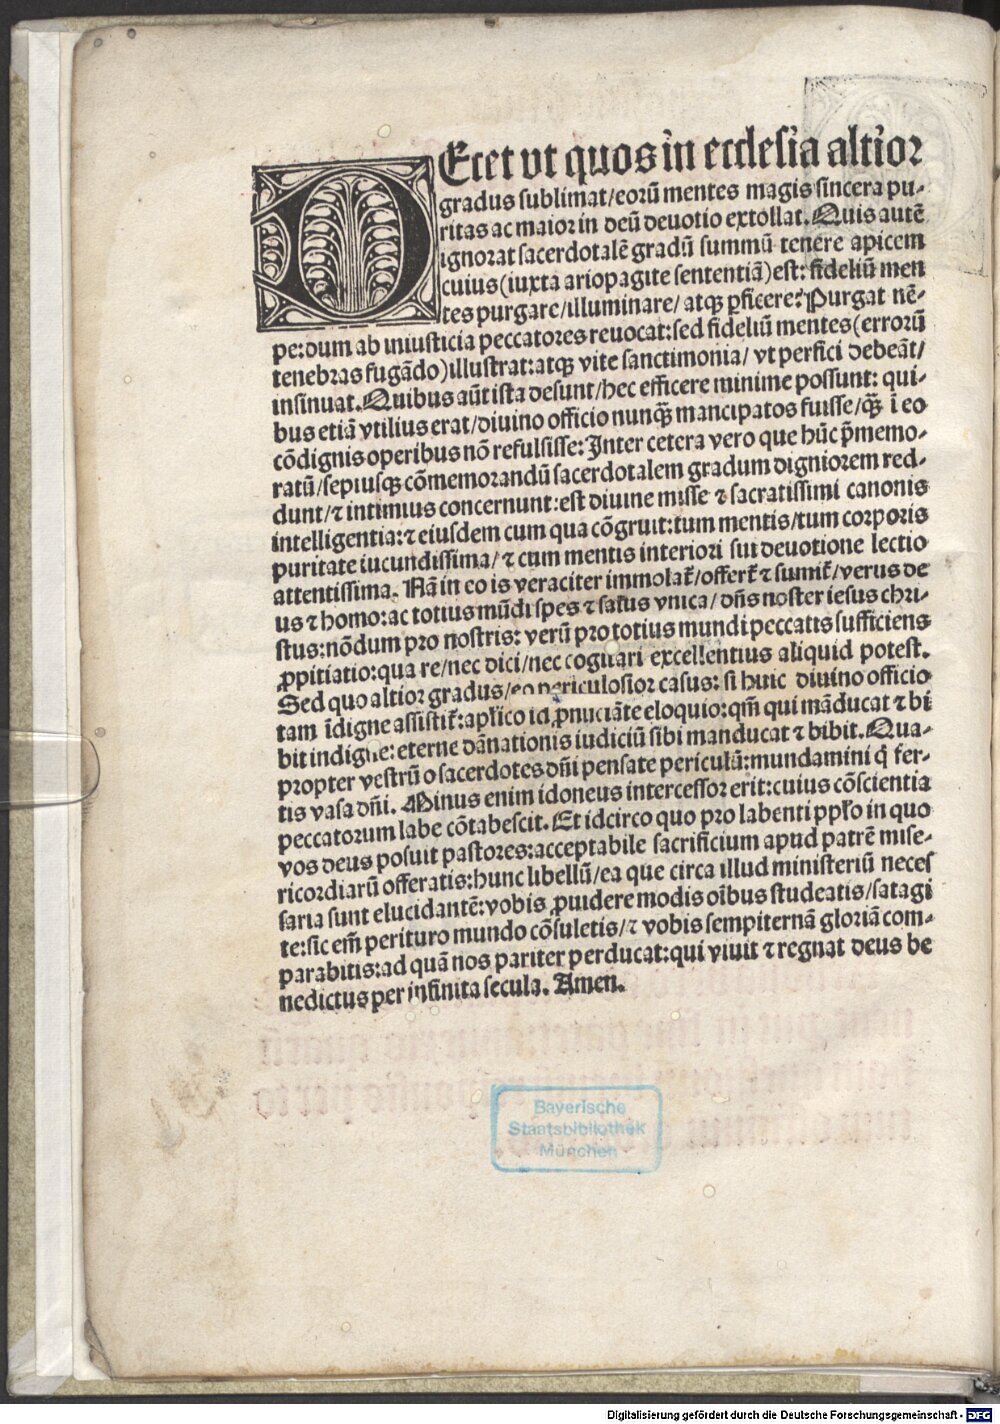 DEcet vt quos in ecclesia altior
gradus sublimat/eorū mentes magis sincera pu-
ritas ac maior in deū deuotio extollat. Quis autē
ignorat sacerdotalē gradū summū tenere apicem
cuius (iuxta ariopagite sententiā) est: fideliū men
tes purgare/illuminare/ atqꝫ ꝑficere? Purgat nē-
pe: dum ab iniusticia peccatores reuocat: sed fideliū mentes (errorū
tenebras fugādo) illustrat: atqꝫ vite sanctimonia/ vt perfici debeāt/
insinuat. Quibus aūt ista desunt/hec efficere minime possunt: qui-
bus etiā vtilius erat/diuino officio nunqꝫ̄ mancipatos fuisse/qꝫ̄ ī eo
cōdignis operibus nō refulsisse: Inter cetera vero que hūc p̄memo-
ratū/sepiusqꝫ cōmemorandū sacerdotalem gradum digniorem red-
dunt/⁊ intimius concernunt: est diuine misse ⁊ sacratissimi canonis
intelligentia: ⁊ eiusdem cum qua cōgruit: tum mentis/tum corporis
puritate iucundissima/ ⁊ cum mentis interiori sui deuotione lectio
attentissima. Nā in eo is veraciter immolat̄/offert̄ ⁊ sumit̄/verus de
us ⁊ homo: ac totius mūdi spes ⁊ salus vnica/ dn̄s noster iesus chri-
stus: nōdum pro nostris: verū pro totius mundi peccatis sufficiens
ꝓpitiatio: qua re/nec dici/nec cogitari excellentius aliquid potest.
Sed quo altior gradus/eo periculosior casus: si huic diuino officio
tam īdigne assistit̄: apl̄ico id ꝓnūciāte eloquio: qm̄ qui māducat ⁊ bi
bit indigne: eterne dānationis iudiciū sibi manducat ⁊ bibit. Qua-
propter vestrū o sacerdotes dn̄i pensate periculū: mundamini q̄ fer-
tis vasa dn̄i. Minus enim idoneus intercessor erit: cuius cōscientia
peccatorum labe cōtabescit. Et idcirco quo pro labenti ppl̄o in quo
vos deus posuit pastores: acceptabile sacrificium apud patrē mise-
ricordiarū offeratis: hunc libellū/ea que circa illud ministeriū neces
saria sunt elucidantē: vobis ꝓuidere modis oībus studeatis/satagi
te: sic em̄ perituro mundo cōsuletis/⁊ vobis sempiternā gloriā com-
parabitis: ad quā nos pariter perducat: qui viuit ⁊ regnat deus be
nedictus per infinita secula. Amen.
Bayerische
Staatsbibliothek
München
Digitalisierung gefördert durch die Deutsche Forschungsgemeinschaft - DFG